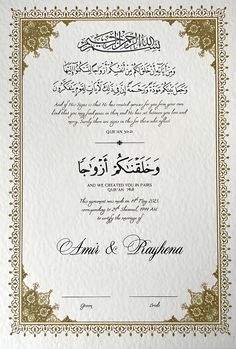 بسم الله الرحمن الرحيم
ومن آياته أن خلق لكم من أنفسكم أزواجا لتسكنوا إليها
وجعل بينكم مودة ورحمة إن في ذلك لآيات لقوم يتفكرون
And of His Signs is that He has created spouses for you from your own
kind that you may find peace in them and He has set between you love and
mercy. Surely there are signs in this for those who reflect
QUR'AN 30:21
وَخَلَقْنَاكُمْ أَزْوَاجًا
AND WE CREATED YOU IN PAIRS
QUR'AN 78:8
This agreement was made on 14th May 2023,
corresponding to Shawwal, 1444 AH
to certify the marriage of
Amir & Rayhena
Groom Bride